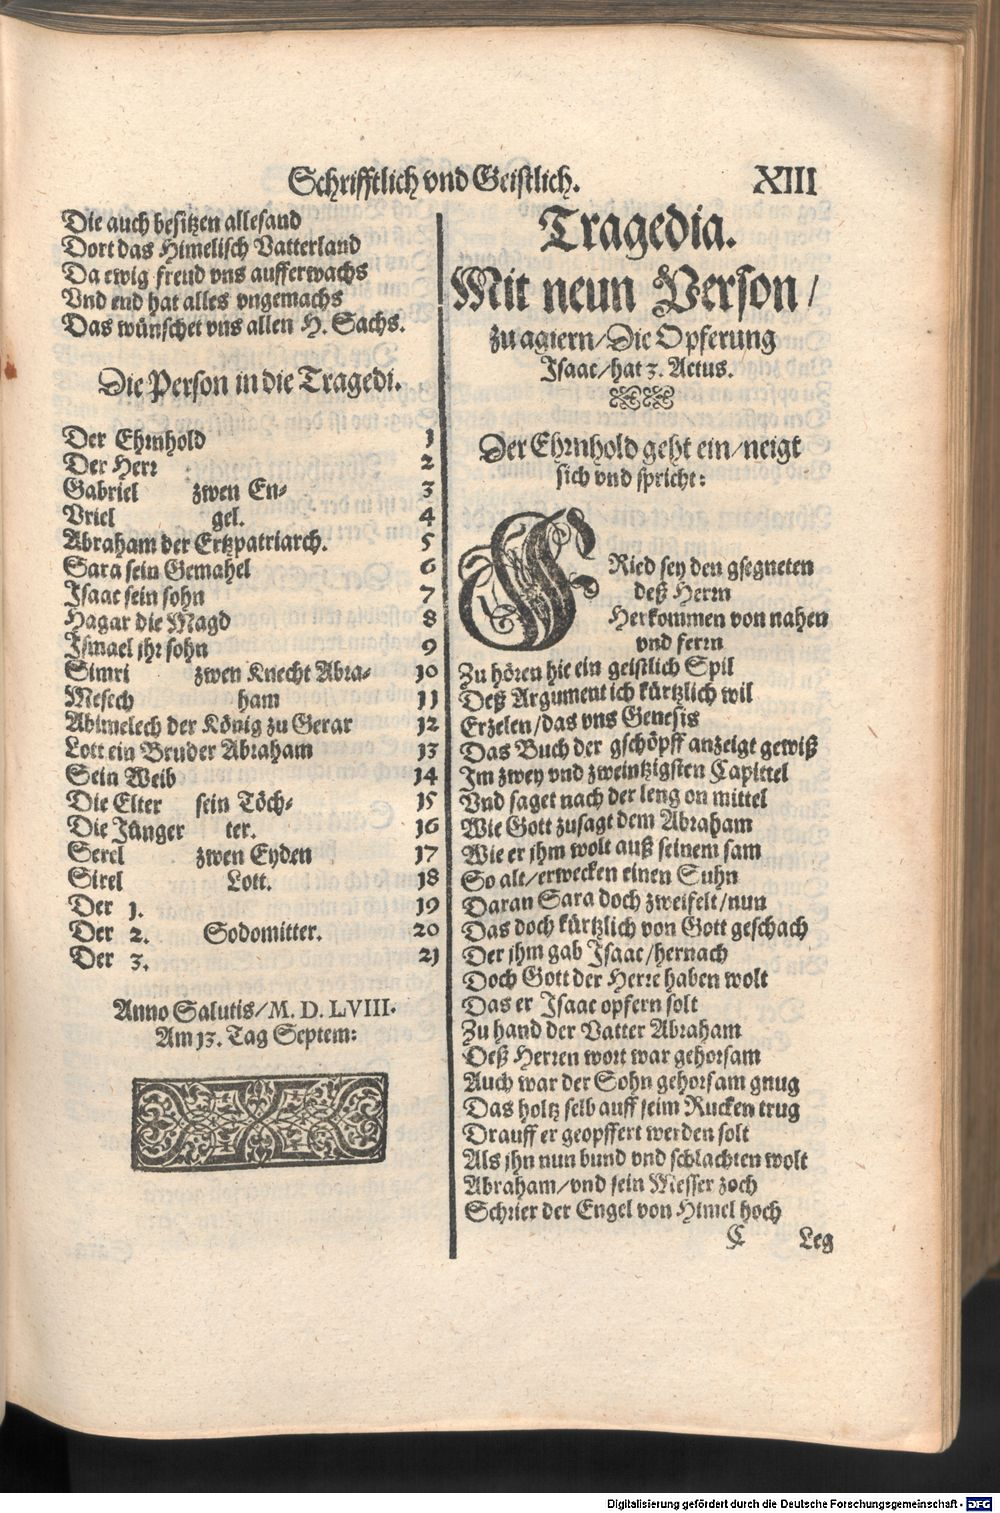 Schrifftlich vnd Geistlich. XIII
Die auch besitzen allesand
Dort das Himelisch Vatterland
Da ewig freud vns aufferwachs
Vnd end hat alles vngemachs
Das wünschet vns allen H. Sachs.
Die Person in die Tragedi.
Der Ehrnhold 1
Der Herr 2
Gabriel zwen En- 3
Vriel gel. 4
Abraham der Ertzpatriarch. 5
Sara sein Gemahel 6
Isaac sein sohn 7
Hagar die Magd 8
Ismael ihr sohn 9
Simri zwen Knecht Abra- 10
Mesech ham 11
Abimelech der König zu Gerar 12
Lott ein Bruder Abraham 13
Sein Weib 14
Die Elter sein Töch- 15
Die Jünger ter. 16
Serel zwen Eyden 17
Sirel Lott. 18
Der 1. 19
Der 2. Sodomitter. 20
Der 3. 21
Anno Salutis/M. D. LVIII.
Am 13. Tag Septem:
Tragedia.
Mit neun Person/
zu agiern/Die Opferung
Isaac/hat 3. Actus.
Der Ehrnhold geht ein/neigt
sich vnd spricht:
FRied sey den gsegneten
deß Herrn
Herkommen von nahen
vnd ferrn
Zu hören hie ein geistlich Spil
Deß Argument ich kürtzlich wil
Erzelen/das vns Genesis
Das Buch der gschöpff anzeigt gewiß
Im zwey vnd zweintzigsten Capittel
Vnd saget nach der leng on mittel
Wie Gott zusagt dem Abraham
Wie er ihm wolt auß seinem sam
So alt/erwecken einen Suhn
Daran Sara doch zweifelt/nun
Das doch kürtzlich von Gott geschach
Der ihm gab Isaac/hernach
Doch Gott der Herre haben wolt
Das er Isaac opfern solt
Zu hand der Vatter Abraham
Deß Herren wort war gehorsam
Auch war der Sohn gehorsam gnug
Das holtz selb auff seim Rucken trug
Drauff er geopffert werden solt
Als ihn nun bund vnd schlachten wolt
Abraham/vnd sein Messer zoch
Schrier der Engel von Himel hoch
C Leg
Digitalisierung gefördert durch die Deutsche Forschungsgemeinschaft - DFG